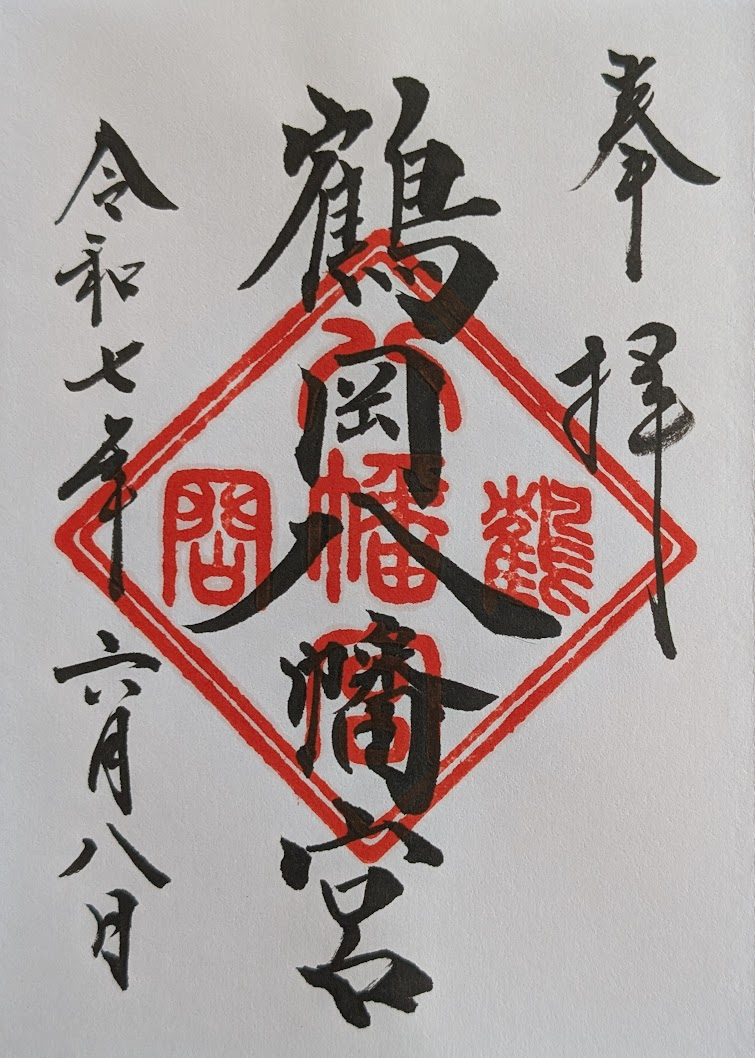 奉拝
鶴岡八幡宮
鶴
八幡宮
岡
令和七年六月八日